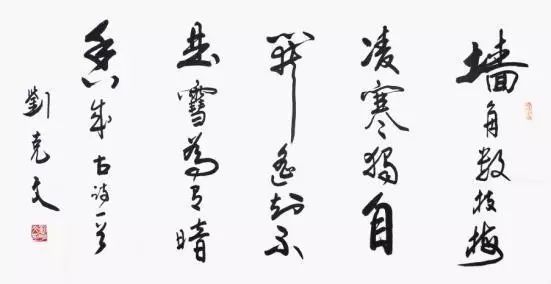 墙角数枝梅
凌寒獨自
開遥知不
是雪為有暗
香来古诗一首
劉克文